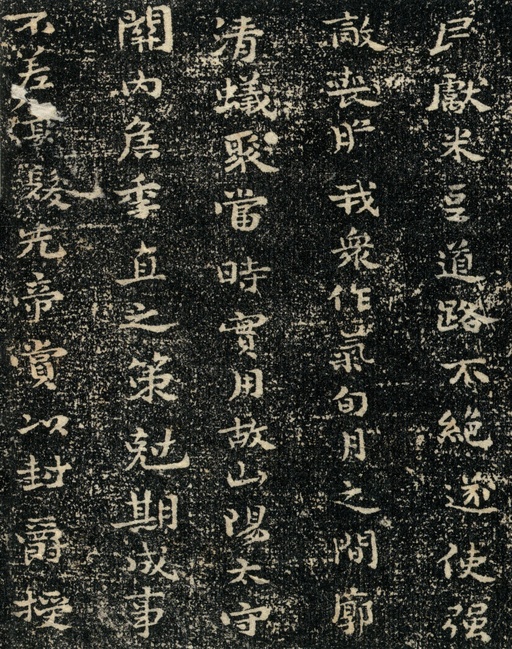 戶獻米豆道路不絕遂使强
敵喪膽我衆作氣旬月之間廓
清蟻聚當時實用故山陽太守
關內侯季直之策尅期成事
不差豪髮先帝賞以封爵授